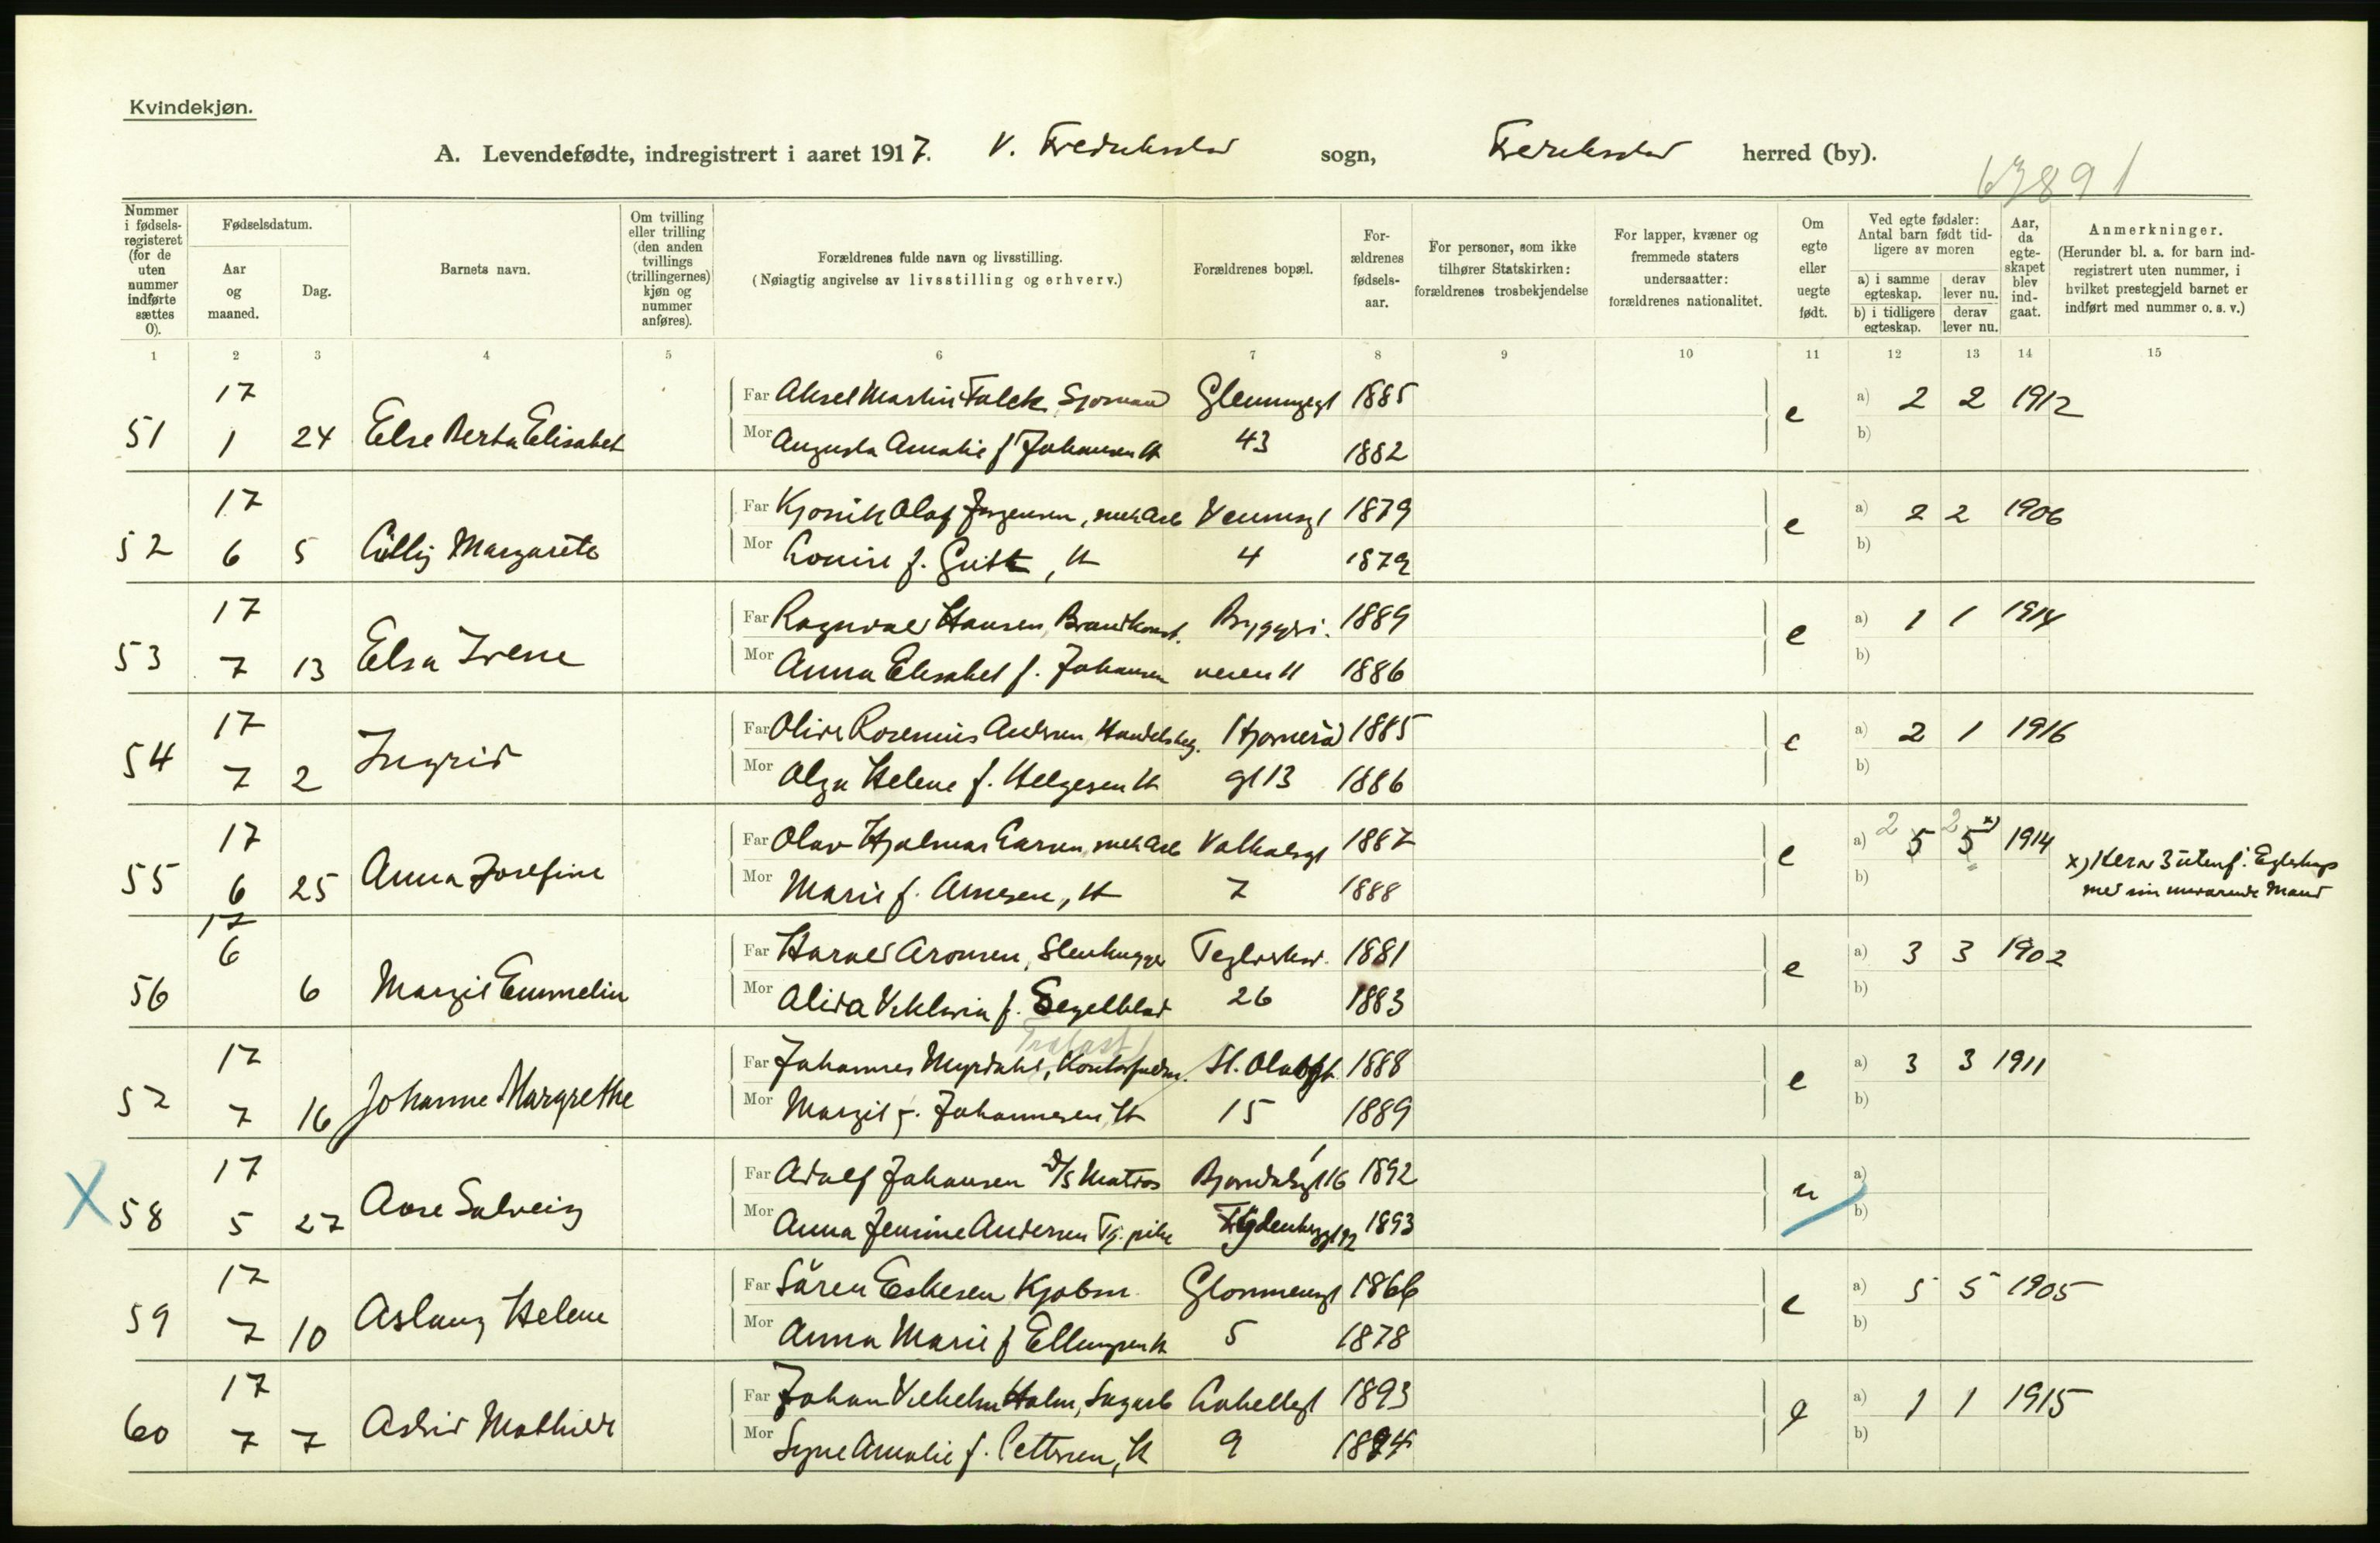 Kvindekjøn.
A. Levendefødte, indregistrert i aaret 1917. V. Fredrikstad sogn, Fredrikstad herred (by).
67891
Nummer i fødsels-registeret (for de uten nummer indførte sættes 0).
Fødselsdatum.
Aar og maaned.
Dag.
Barnets navn.
Om tvilling eller trilling (den anden tvillings (trillingernes) kjøn og nummer anføres).
Forældrenes fulde navn og livsstilling.
(Nøiagtig angivelse av livsstilling og erhverv.)
Forældrenes bopæl.
For-ældrenes fødsels-aar.
For personer, som ikke tilhører Statskirken: forældrenes trosbekjendelse
For lapper, kvæner og fremmede staters undersaatter: forældrenes nationalitet.
Om egte eller uegte født.
Ved egte fødsler: Antal barn født tid-ligere av moren
a) i samme egteskap. derav lever nu.
b) i tidligere egteskap. derav lever nu.
Aar, da egte-skapet blev ind-gaat.
Anmerkninger.
(Herunder bl. a. for barn ind-registrert uten nummer, i hvilket prestegjeld barnet er indført med nummer o. s. v.)
1 2 3 4 5 6 7 8 9 10 11 12 13 14 15
17 Far Aksel Martin Falck, Sjømand Glemmegt 1885 a) 2 2 1912
51 1 24 Else Berta Elisabet Mor Augusta Amalie f Johansen H 43 1882 e b)
17 Far Olaf Jørgensen, mek Arb 1879 a) 2 2 1906
52 6 5 Margarete Mor Louise f. , H 4 1879 e b)
17 Far Ragnvald Hansen, Brandkonst. Bryggeri- 1889 a) 1 1 1914
53 7 13 Elsa Irene Mor Anna Elisabet f. Johansen veien 11 1886 e b)
17 Far Rosenius Andersen, Handelsbetj. 1885 a) 2 1 1916
54 7 2 Ingrid Mor Olga Helene f. Helgesen H gt 13 1886 e b)
17 Far Olav Hjalmar Larsen, mek Arb Valhalsgt 1887 a) 2 5 2 5 x) 1914
55 6 25 Anna Josefine Mor Marie f. Arnesen, H 7 1888 e b)
x) Herav 3 utenf. Egteskap
med sin nuværende Mand
17 6 Far Harald Aronsen, Stenhugger 1881 a) 3 3 1902
56 6 Margit Emmelin Mor Alida f. Segelblad 26 1883 e b)
17 Far Johannes Myrdahl, St. Olafsgt. 1888 a) 3 3 1911
57 7 16 Johanne Margrethe Mor Margit f. Johannesen, H 15 1889 e b)
17 Far Adolf Johansen D/S Matros Bjørndalsgt 16 1892 a)
X 58 5 27 Aase Solveig Mor Anna Jensine Andersen Tj. pike 1893 u b)
17 Far Sören Eskesen Kjøbm. Glommengt 1866 a) 5 5 1905
59 7 10 Aslaug Helene Mor Anna Marie f Ellingsen H 5 1878 e b)
17 Far Johan Vilhelm Holm, Sagarb 1893 a) 1 1 1915
60 7 7 Astrid Mathilde Mor Signe Amalie f. Pettersen, H 9 1894 e b)